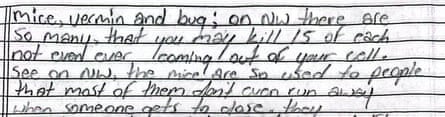 mice, vermin and bug; on NW there are
so many, that you may kill 15 of each
not even ever coming out of your cell.
see on NW, the mice are so used to people
that most of them don't even run away
when someone gets to close, they